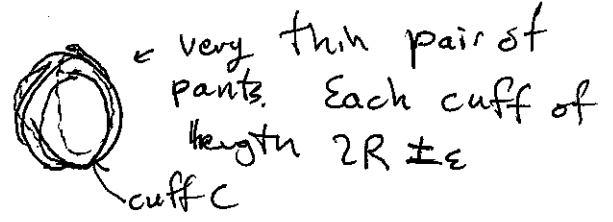 ← very thin pair of
pants. Each cuff of
length 2R ± ε
cuff C